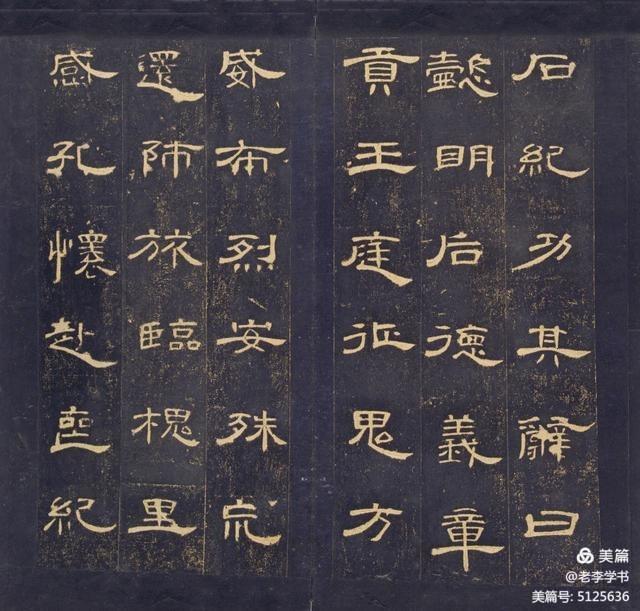 石紀功其辭曰
懿明后德義章
貢王庭征鬼方
威布烈安殊巟
還師旅臨槐里
感孔懷赴喪紀
美篇
@老李学书
美篇号: 5125636